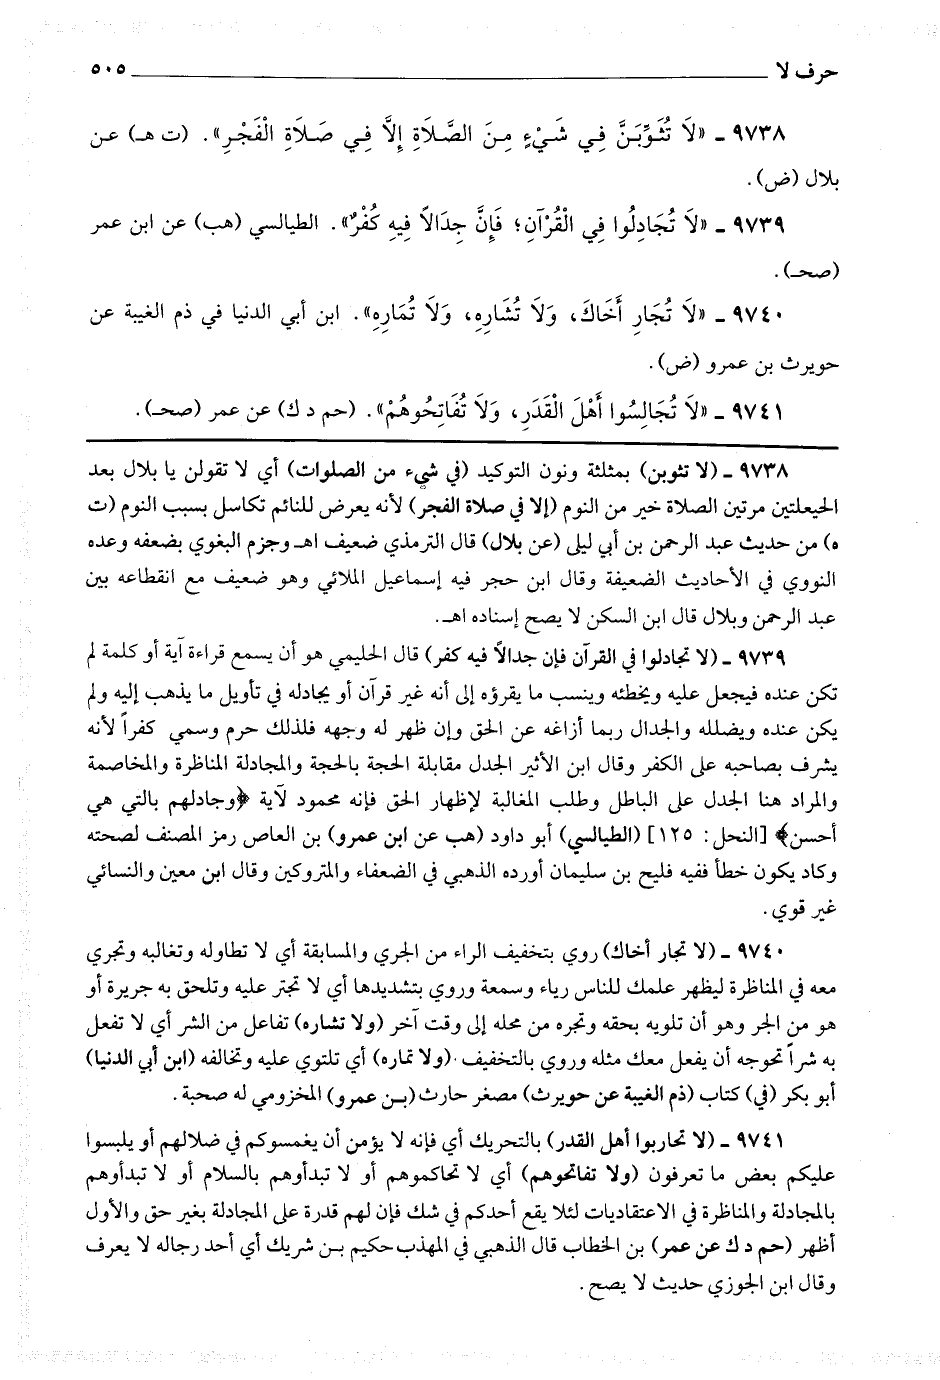 حرف لا ٥٠٥
٩٧٣٨ ـ «لَا تُثَوِّبَنَّ فِي شَيْءٍ مِنَ الصَّلَاةِ إِلَّا فِي صَلَاةِ الْفَجْرِ». (ت هـ) عن
بلال (ض).
٩٧٣٩ ـ «لَا تُجَادِلُوا فِي الْقُرْآنِ؛ فَإِنَّ جِدَالاً فِيهِ كُفْرٌ». الطيالسي (هب) عن ابن عمر
(صحـ).
٩٧٤٠ ـ «لَا تُجَارِ أَخَاكَ، وَلَا تُشَارِهِ، وَلَا تُمَارِهِ». ابن أبي الدنيا في ذم الغيبة عن
حويرث بن عمرو (ض).
٩٧٤١ ـ «لَا تُجَالِسُوا أَهْلَ الْقَدَرِ، وَلَا تُفَاتِحُوهُمْ». (حم د ك) عن عمر (صحـ).
٩٧٣٨ ـ (لا تثوبن) بمثلثة ونون التوكيد (في شيء من الصلوات) أي لا تقولن يا بلال بعد
الحيعلتين مرتين الصلاة خير من النوم (إلا في صلاة الفجر) لأنه يعرض للنائم تكاسل بسبب النوم (ت
ه) من حديث عبد الرحمن بن أبي ليلى (عن بلال) قال الترمذي ضعيف اهـ وجزم البغوي بضعفه وعده
النووي في الأحاديث الضعيفة وقال ابن حجر فيه إسماعيل الملائي وهو ضعيف مع انقطاعه بين
عبد الرحمن وبلال قال ابن السكن لا يصح إسناده اهـ.
٩٧٣٩ ـ (لا تجادلوا في القرآن فإن جدالاً فيه كفر) قال الحليمي هو أن يسمع قراءة آية أو كلمة لم
تكن عنده فيجعل عليه ويخطئه وينسب ما يقرؤه إلى أنه غير قرآن أو يجادله في تأويل ما يذهب إليه ولم
يكن عنده ويضلله والجدال ربما أزاغه عن الحق وإن ظهر له وجهه فلذلك حرم وسمي كفراً لأنه
يشرف بصاحبه على الكفر وقال ابن الأثير الجدل مقابلة الحجة بالحجة والمجادلة المناظرة والمخاصمة
والمراد هنا الجدل على الباطل وطلب المغالبة لإظهار الحق فإنه محمود لآية ﴿وجادلهم بالتي هي
أحسن﴾ [النحل: ١٢٥] (الطيالسي) أبو داود (هب عن ابن عمرو) بن العاص رمز المصنف لصحته
وكاد يكون خطأ ففيه فليح بن سليمان أورده الذهبي في الضعفاء والمتروكين وقال ابن معين والنسائي
غير قوي.
٩٧٤٠ ـ (لا تجار أخاك) روي بتخفيف الراء من الجري والمسابقة أي لا تطاوله وتغالبه وتجري
معه في المناظرة ليظهر علمك للناس رياء وسمعة وروي بتشديدها أي لا تجتر عليه وتلحق به جريرة أو
هو من الجر وهو أن تلويه بحقه وتجره من محله إلى وقت آخر (ولا تشاره) تفاعل من الشر أي لا تفعل
به شراً تحوجه أن يفعل معك مثله وروي بالتخفيف (ولا تماره) أي تلتوي عليه وتخالفه (ابن أبي الدنيا)
أبو بكر (في) كتاب (ذم الغيبة عن حويرث) مصغر حارث (بن عمرو) المخزومي له صحبة.
٩٧٤١ ـ (لا تحاربوا أهل القدر) بالتحريك أي فإنه لا يؤمن أن يغمسوكم في ضلالهم أو يلبسوا
عليكم بعض ما تعرفون (ولا تفاتحوهم) أي لا تحاكموهم أو لا تبدأوهم بالسلام أو لا تبدأوهم
بالمجادلة والمناظرة في الاعتقاديات لئلا يقع أحدكم في شك فإن لهم قدرة على المجادلة بغير حق والأول
أظهر (حم د ك عن عمر) بن الخطاب قال الذهبي في المهذب حكيم بن شريك أي أحد رجاله لا يعرف
وقال ابن الجوزي حديث لا يصح.